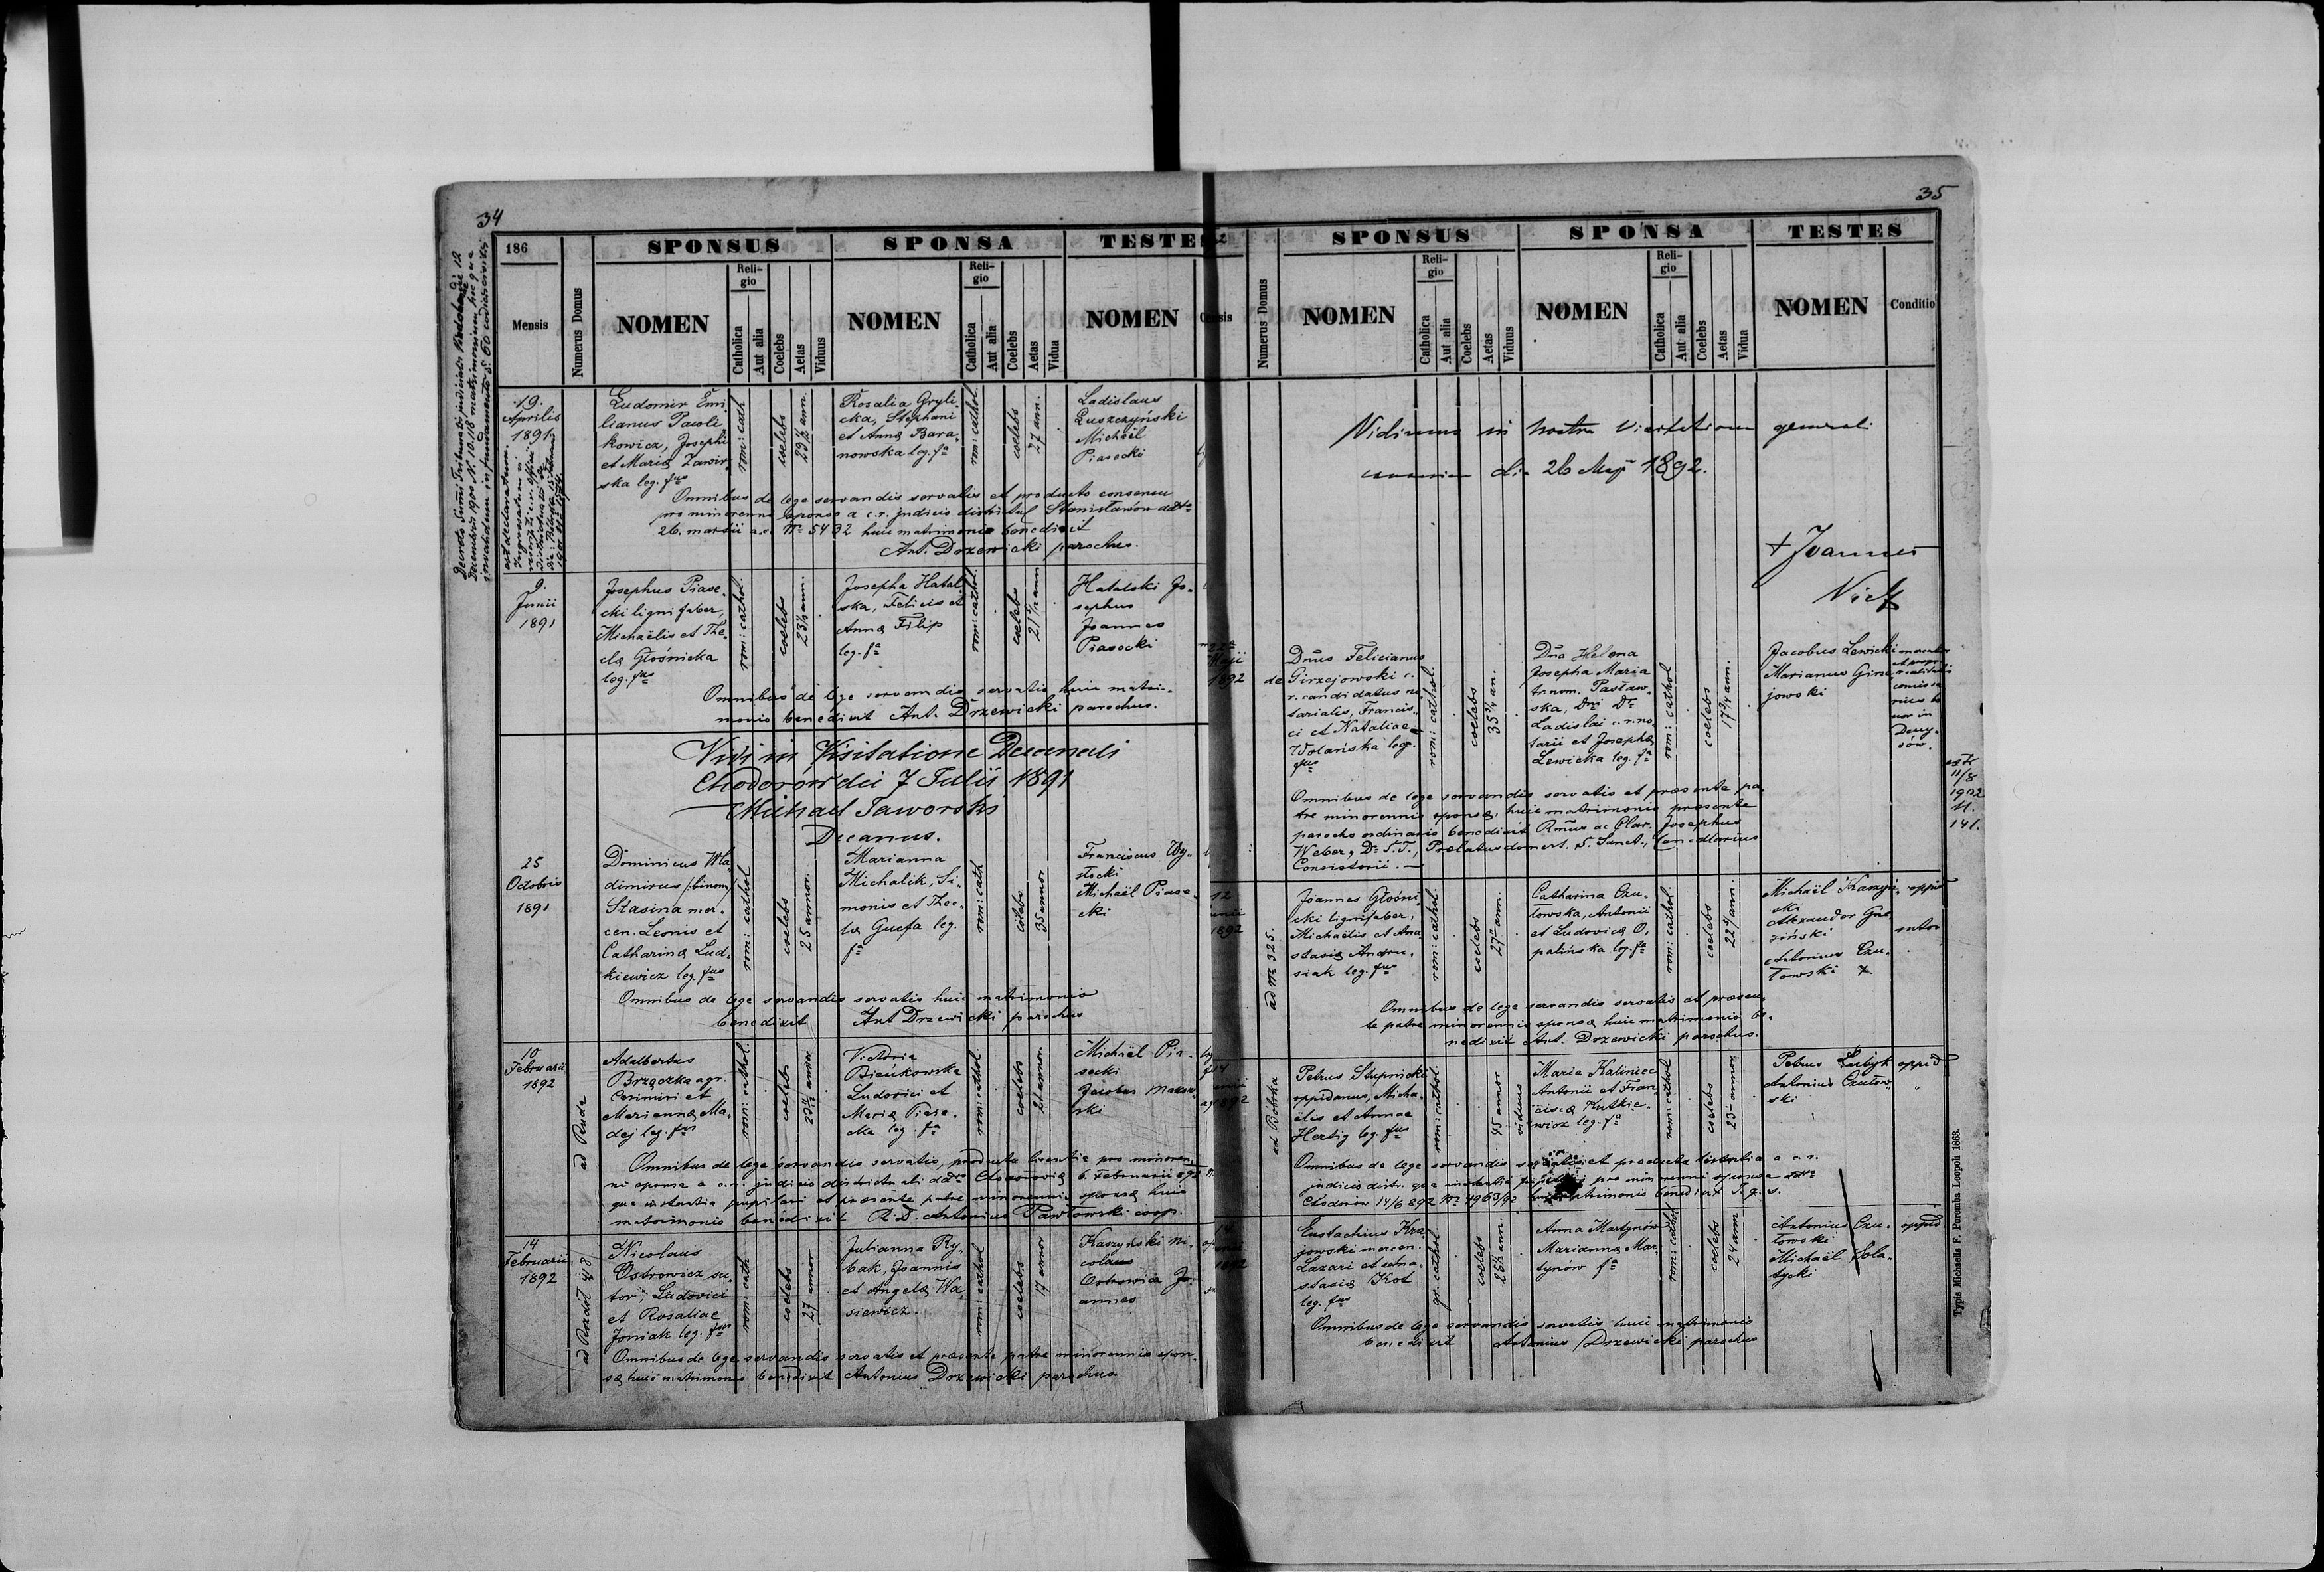 34
186
SPONSUS
SPONSA
TESTES
Mensis
Numerus Domus
NOMEN
Religio
Catholica
Aut alia
Coelebs
Aetas
Viduus
NOMEN
Religio
Catholica
Aut alia
Coelebs
Aetas
Vidua
NOMEN
19.
Aprilis
1891
Ludomir Emi
lianus Pawli
kowicz, Josephi
et Mariæ Zawir
ska leg. fus
rom: cath
coelebs
Rosalia Gryli
cka, Stephani
et Annæ Bara-
nowska leg. fa
rom: cathol.
coelebs
27 ann.
Ladislaus
Łuszczyński
Michaël
Piasecki
Omnibus de lege servandis servatis et producto consensu
pro minorenni sponso a c.r. judicio district Stanisławów dtto
26. martii a.c. No 5432 huic matrimonio benedixit
Ant. Drzewicki parochus.
9.
Junii
1891
Josephus Piase-
cki ligni faber,
Michaëlis et The-
clæ Głośnicka
leg. fus
rom: cathol.
coelebs
Josepha Hatal
ska, Felicis et
Annæ Filip
leg. fa
rom: cathol.
coelebs
Hatalski Jo-
sephus
Joannes
Piasecki
Omnibus de lege servandis servatis huic matri-
monio benedixit Ant. Drzewicki parochus.
Vidi in Visitatione Decanali
Chodorów die 7 Julii 1891
Michael Jaworski
Decanus.
25
Octobris
1891
Dominicus Wla
dimirus /:binom/
Stasina mer-
cen. Leonis et
Catharinæ Lud-
kiewicz leg. fus
rom: cathol
coelebs
25 annor.
Marianna
Michalik, Si-
monis et Thec-
læ Guefa leg.
fa
rom: cath
35 annor
Franciscus Wy-
stocki
Michaël Piase-
cki
Omnibus de lege servandis servatis huic matrimonio
benedixit Ant Drzewicki parochus
10
Februarii
1892
ad Ruda
Adalbertus
Brzączka agr.
Casimiri et
Mariannæ Ma-
dej leg. fus
rom: cathol.
coelebs
Victoria
Bieńkowska
Ludovici et
Mariæ Piase-
cka leg. fa
rom: cathol.
coelebs
Michaël Pia-
secki
Jacobus
Omnibus de lege servandis servatis, producta licentia pro minoren-
ni sponso a c.r. judicio districtuali dtto Chodoroviæ 6. Februarii 892
qua instantia pupilari et præsente patre minorennis sponsæ huic
matrimonio benedixit R. D. Antonius Pawłowski coop.
14
Februarii
1892
ad Rozdół 48
Nicolaus
Ostrowicz su-
tor, Ludovici
et Rosaliae
Joniak leg. fus
rom: cath
coelebs
27 annor
Julianna Ry-
bak, Joannis
et Angelæ Wa-
siewicz.
rom: cathol
coelebs
17 annor
Kaszyński Ni-
colaus
Ostrowicz Jo-
annes
Omnibus de lege servandis servatis et præsente patre minorennis spon-
sæ huic matrimonio benedixit Antonius Drzewicki parochus.
35
SPONSUS
SPONSA
TESTES
Numerus Domus
NOMEN
Religio
Catholica
Aut alia
Coelebs
Aetas
Viduus
NOMEN
Religio
Catholica
Aut alia
Coelebs
Aetas
Vidua
NOMEN
Conditio
Vidimus in nostra Visitatione generali
die 26 Maji 1892.
+ Joannes
Maji
1892
Dnus Felicianus
Girzejowski c.
r. candidatus no
tarialis, Francis-
ci et Nataliae
Wolańska leg.
fus
rom: cathol.
coelebs
35 3/4 an.
Dna Helena
Josepha Maria
tr. nom. Pasław-
ska, Dni Dr
Ladislai c.r. no-
tarii et Josephæ
Lewicka leg. fa
rom: cathol
coelebs
17 3/4 ann.
Jacobus Lewicki
Marianus Girze
jowski
Omnibus de lege servandis servatis et præsente pa-
tre minorennis sponsæ, huic matrimonio præsente
parocho ordinario benedixit Rmus ac Clar. Josephus
Weber, Dr S.T., Prælatus domest. S. Sanct., Cancellarius
Consistorii.
extr
11/8
1902
N.
141.
12
1892
ad No 325.
Joannes Głośni
cki lignifaber,
Michaëlis et Ana
stasiæ Andru-
siak leg. fus
rom: cathol.
coelebs
Catharina Czu-
łowska, Antonii
et Ludovicæ O-
palińska leg. fa
rom: cathol.
coelebs
Michaël Kaszyń-
ski
Alexander Gru
ziński
Antonius Czu-
łowski
oppid
sutor
Omnibus de lege servandis servatis et præsen-
te patre minorennis sponsæ huic matrimonio be-
nedixit Ant. Drzewicki parochus.
1892
ad Bóbrka
Petrus Stupnicki
oppidanus, Micha-
ëlis et Annae
Hertig leg. fus
rom: cathol.
45 annor
viduus
Maria Kaliniec
Antonii et Fran-
ciscæ Kutkie-
wicz leg. fa
rom: cathol
coelebs
Petrus Łubyk
Antonius Czułow-
ski
oppid
Omnibus de lege servandis servatis et producta licentia a c.r.
judicio distr. qua instantia pupilari pro minorenni sponsa dtto
Chodorów 14/6 892 No 4963/92 huic matrimonio benedixit
14
1892
Eustachius Kra
jowski mercen.
Lazari et Ana-
stasiæ Kot
leg. fus
gr. cathol.
coelebs
Anna Martynów
Mariannæ Mar-
tynów fa
rom: cathol
coelebs
24 ann
Antonius Czu-
łowski
Michaël Sola-
tycki
oppid
Omnibus de lege servandis servatis huic matrimonio
benedixit Antonius Drzewicki parochus
Typis Michaelis F. Poremba Leopoli 1863.